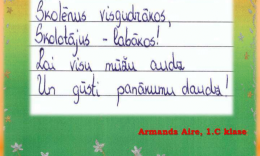 Skolēnus visgudrākos,
Skolotājus - labākos!
Lai visu mūžu audz
Un gūsti panākumu daudz!
Armanda Aire, 1.C klase